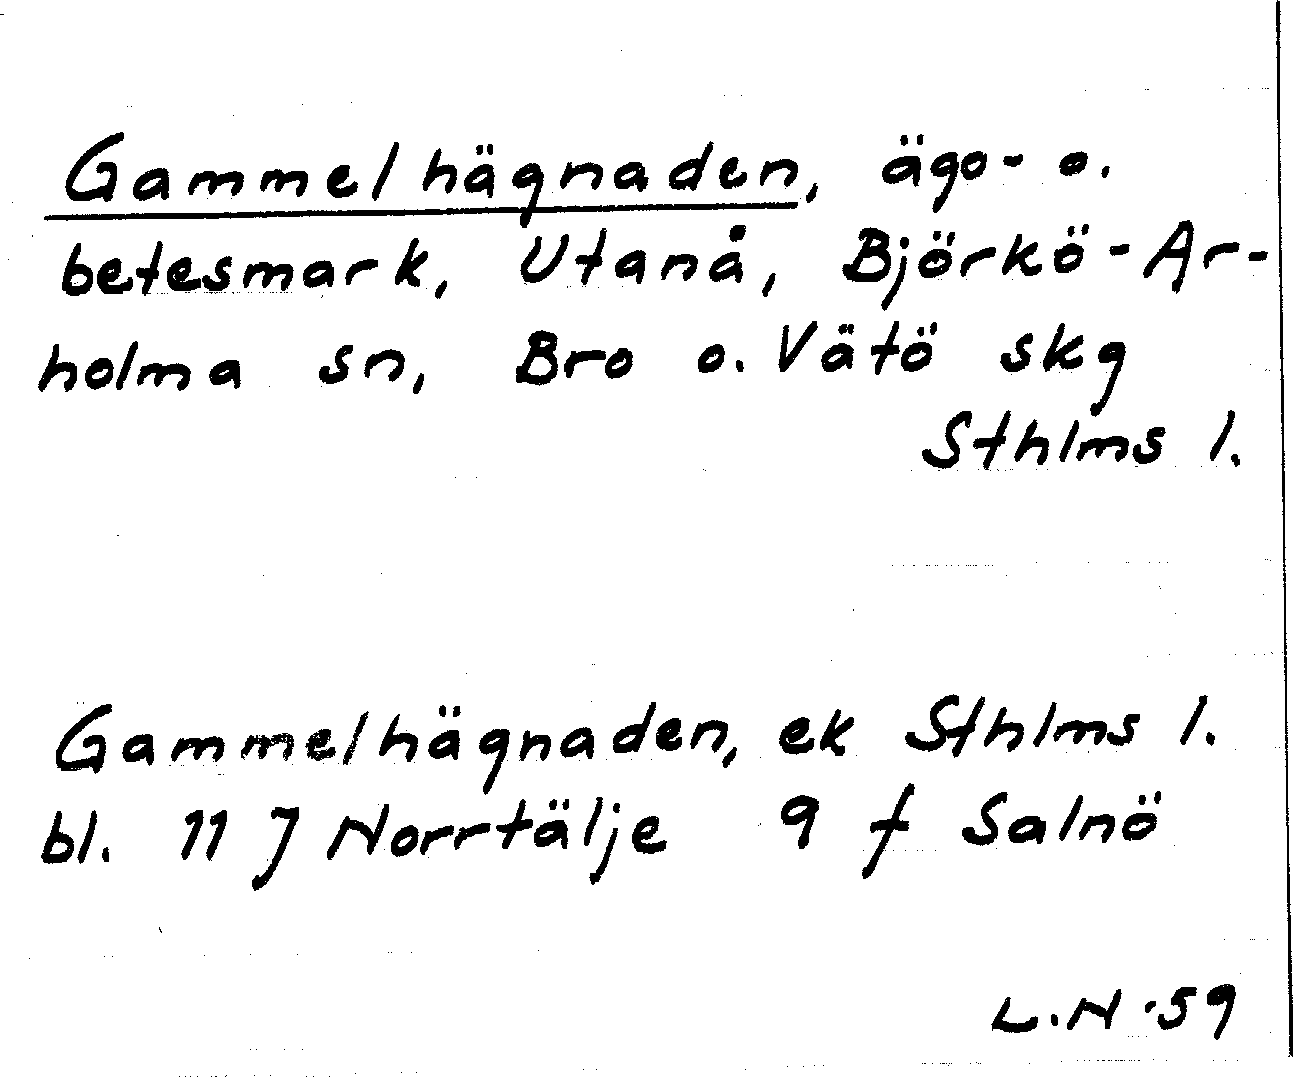 Gammelhägnaden, ägo- o.
betesmark, Utanå, Björkö-Ar-
holma sn, Bro o. Vätö skg
Sthlms l.
Gammelhägnaden, ek Sthlms l.
bl. 11 J Norrtälje 9 f Salnö
L.N -59